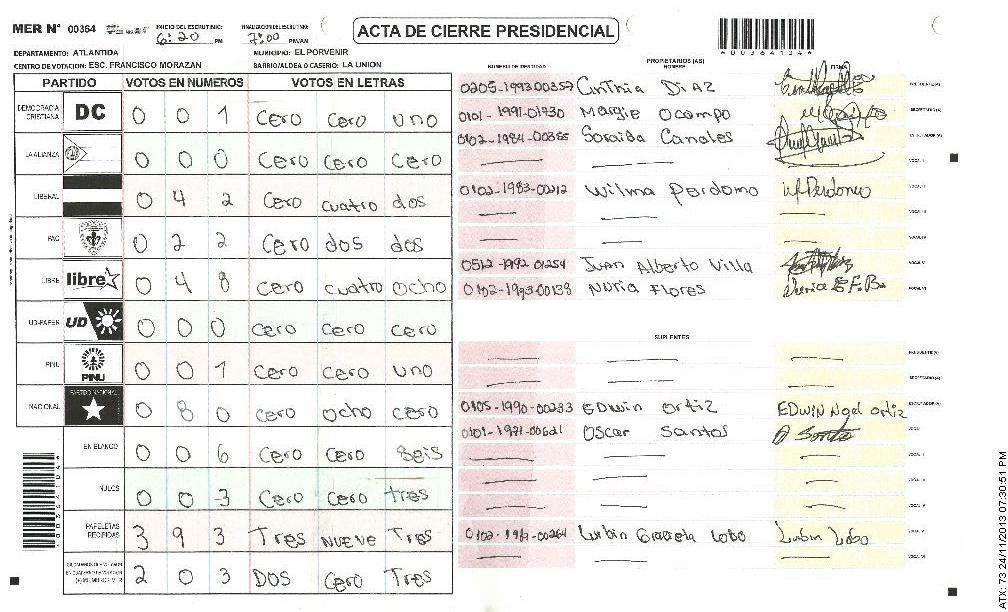 MER N° 00364 INICIO DEL ESCRUTINIO: 6:20 PM FINALIZACION DEL ESCRUTINIO: 7:00 PM/AM
ACTA DE CIERRE PRESIDENCIAL
DEPARTAMENTO: ATLANTIDA MUNICIPIO: EL PORVENIR
CENTRO DE VOTACION: ESC. FRANCISCO MORAZAN BARRIO/ALDEA O CASERIO: LA UNION
PARTIDO VOTOS EN NUMEROS VOTOS EN LETRAS
DEMOCRACIA CRISTIANA DC 0 0 1 Cero Cero uno
LA ALIANZA 0 0 0 Cero Cero Cero
LIBERAL 0 4 2 Cero cuatro dos
PAC 0 2 2 Cero dos dos
LIBRE libre 0 4 8 Cero cuatro ocho
UD-FAPER UD 0 0 0 cero cero cero
PINU PINU 0 0 1 cero cero uno
NACIONAL PARTIDO NACIONAL 0 8 0 cero ocho cero
EN BLANCO 0 0 6 Cero Cero Seis
NULOS 0 0 3 Cero Cero tres
PAPELETAS RECIBIDAS 3 9 3 Tres NUEVE Tres
2 0 3 DOS Cero Tres
PROPIETARIOS (AS)
NUMERO DE IDENTIDAD NOMBRE FIRMA
0205-1993-00357 Cinthia DIAZ PRESIDENTE(A)
0101-1991-01930 Margie Ocampo SECRETARIO(A)
0102-1984-00365 Soraida Canales ESCRUTADOR(A)
VOCAL I
0102-1983-00212 Wilma Perdomo W Perdomo VOCAL II
VOCAL III
VOCAL IV
0512-1992-01254 Juan Alberto Villa VOCAL V
0102-1993-00138 Nuria Flores VOCAL VI
SUPLENTES
PRESIDENTE(A)
SECRETARIO(A)
0105-1990-00233 EDwin ortiz EDWIN Noel ortiz ESCRUTADOR(A)
0101-1971-00621 Oscar Santos VOCAL I
VOCAL II
VOCAL III
VOCAL IV
Lubin Graciela Lobo Lubin Lobo VOCAL V
VOCAL VI
ATX: 73 24/11/2013 07:30:51 PM